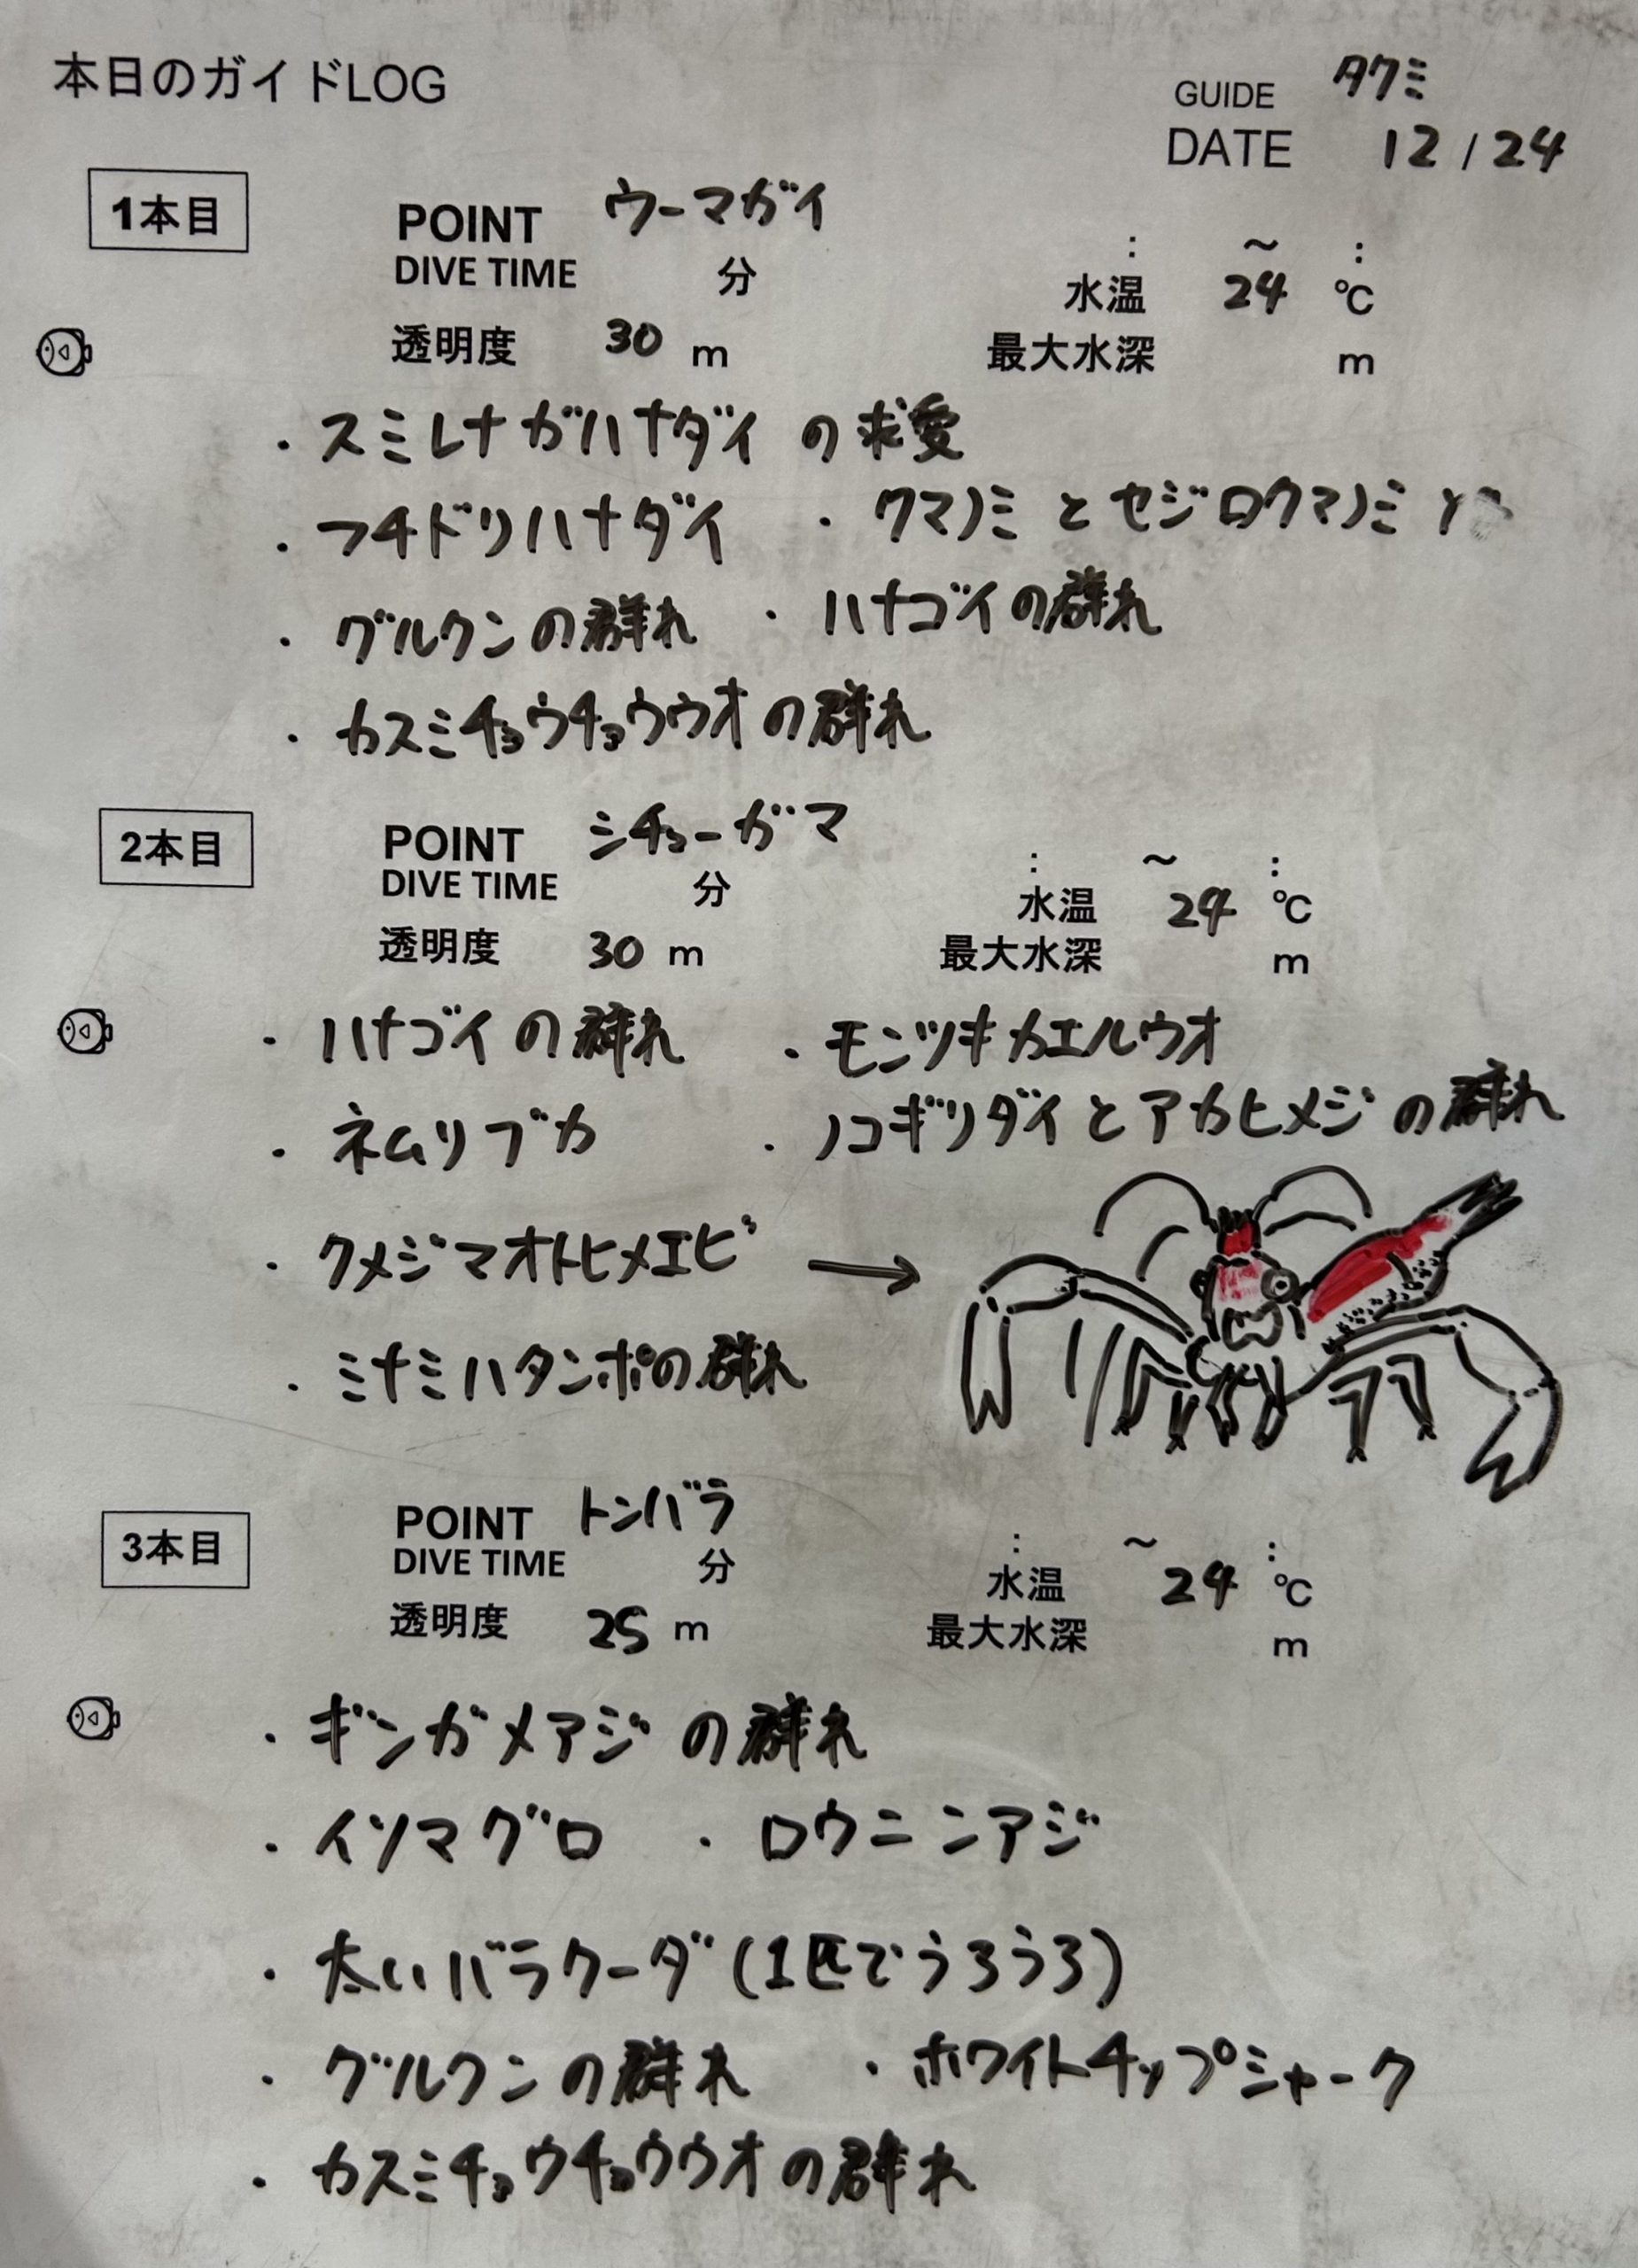 本日のガイドLOG
GUIDE タクミ
DATE 12/24
1本目
POINT ウーマガイ
DIVE TIME 分 : ～ :
水温 24 ℃
透明度 30 m 最大水深 m
・スミレナガハナダイの求愛
・フチドリハナダイ ・クマノミとセジロクマノミ
・グルクンの群れ ・ハナゴイの群れ
・カスミチョウチョウウオの群れ
2本目
POINT シチューガマ
DIVE TIME 分 : ～ :
水温 24 ℃
透明度 30 m 最大水深 m
・ハナゴイの群れ ・モンツキカエルウオ
・ネムリブカ ・ノコギリダイとアカヒメジの群れ
・クメジマオトヒメエビ →
・ミナミハタンポの群れ
3本目
POINT トンバラ
DIVE TIME 分 : ～ :
水温 24 ℃
透明度 25 m 最大水深 m
・ギンガメアジの群れ
・イソマグロ ・ロウニンアジ
・太いバラクーダ(1匹でうろうろ)
・グルクンの群れ ・ホワイトチップシャーク
・カスミチョウチョウウオの群れ